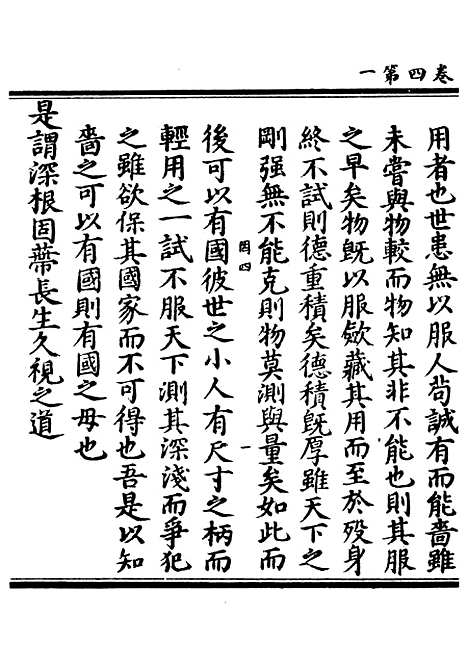 卷四第一
用者也世患無以服人茍誠有而能嗇雖
未嘗與物較而物知其非不能也則其服
之早矣物旣以服歛藏其用而至於殁身
終不試則德重積矣德積旣厚雖天下之
剛强無不能克則物莫測與量矣如此而
因四
一
後可以有國彼世之小人有尺寸之柄而
輕用之一試不服天下測其深淺而爭犯
之雖欲保其國家而不可得也吾是以知
嗇之可以有國則有國之母也
是謂深根固蔕長生久視之道